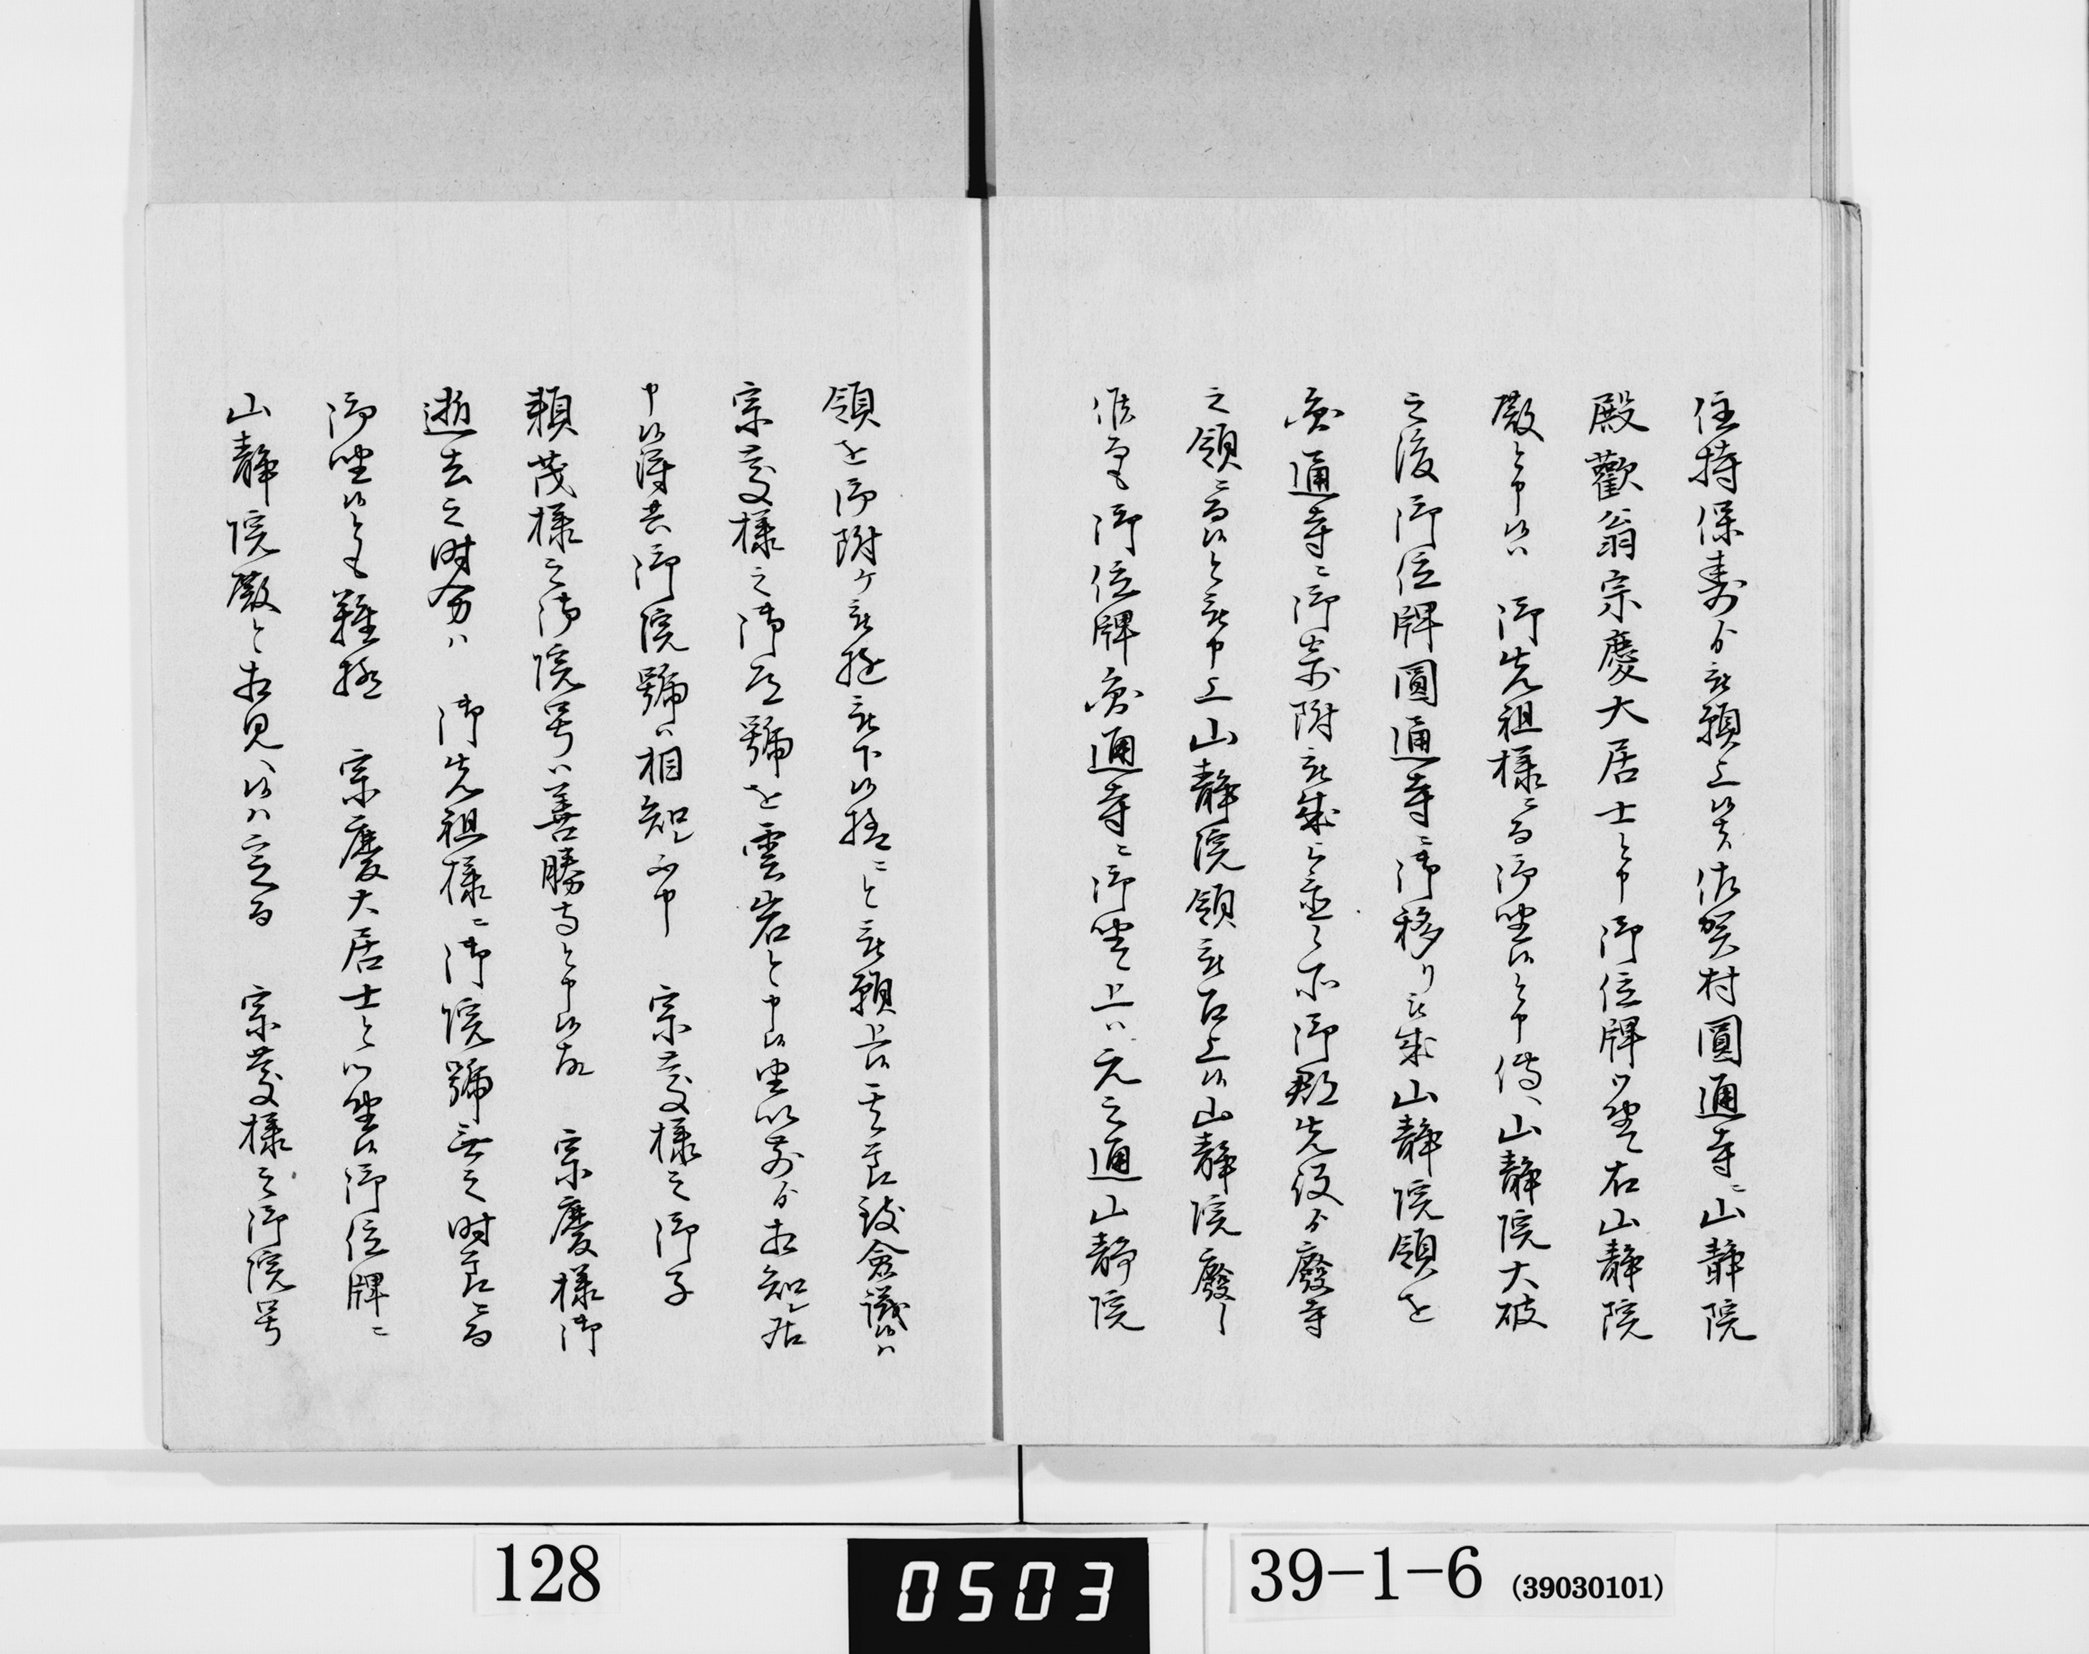 住持保寿ゟ被願上候ハ佐賀村圓通寺ニ山静院
殿歡翁宗慶大居士と申御位牌御坐候右山静院
殿と申候ハ御先祖様ニ而御坐候と申傳、山静院大破
之後御位牌圓通寺ニ御移り被成山静院領を
圓通寺ニ御寄附被成
之領ニ而候と被申上山静院領被召上候山静院廢し
候而も御位牌圓通寺ニ御坐候上ハ元之通山静院
領を御附ケ被遊被下候様ニと被願上候其節致僉議候ハ
宗慶様之御道號を雲岩と申候由以前ゟ相知レ居
申候得共御院號ハ相知レ不申 宗慶様之御子
頼茂様之御院号ハ善勝寺と申候故 宗慶様御
逝去之時分ハ 御先祖様ニ御院號無之時節ニ而
御坐候とも難極 宗慶大居士と御坐候御位牌ニ
山静院殿と相見へ候ハ定而 宗慶様之御院号
128
0503
39-1-6 (39030101)